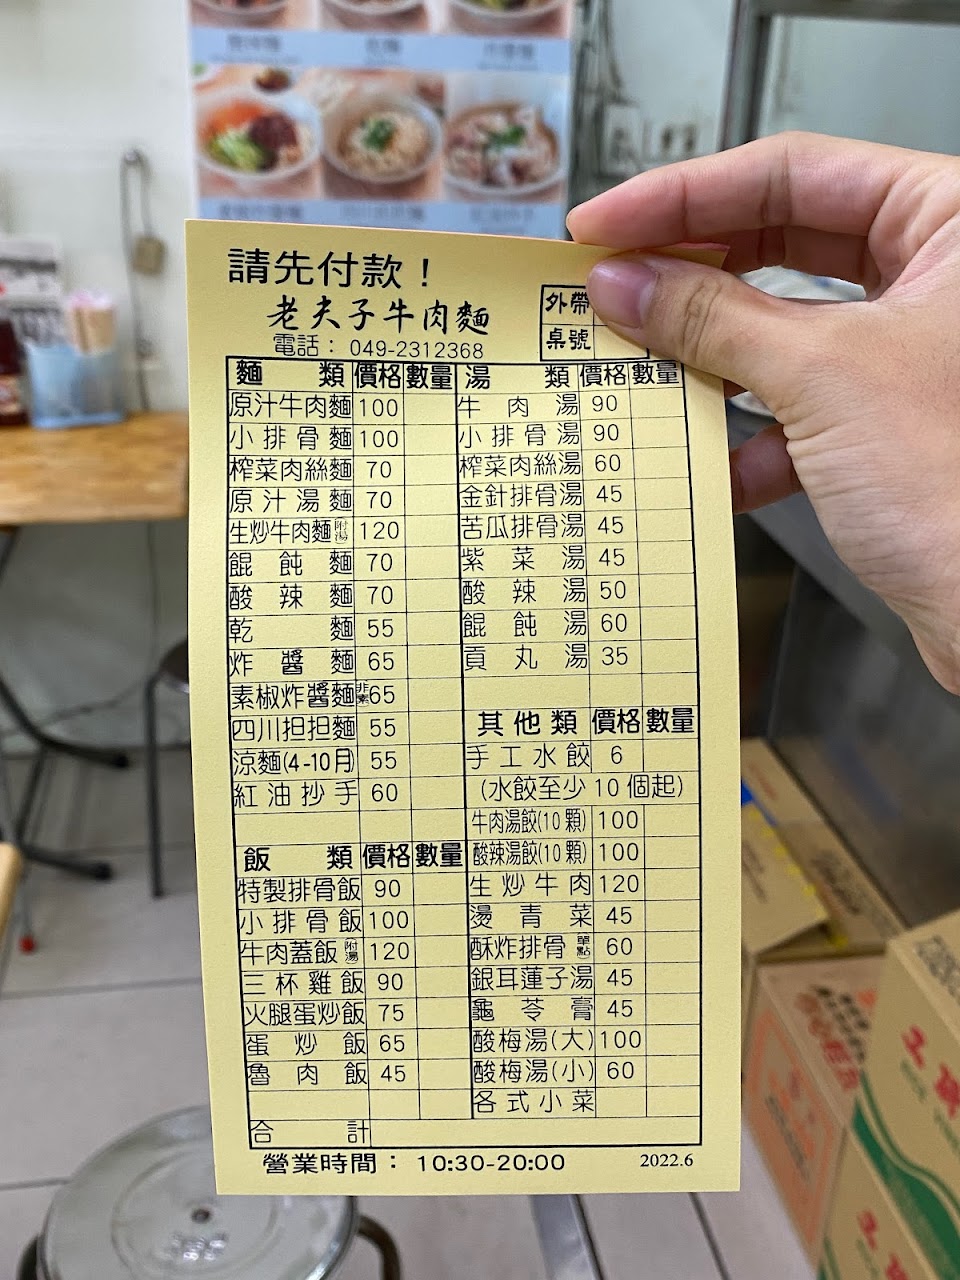 請先付款！
老夫子牛肉麵
電話： 049-2312368
外帶
桌號
麵類 價格 數量
原汁牛肉麵 100
小排骨麵 100
榨菜肉絲麵 70
原汁湯麵 70
生炒牛肉麵(附湯) 120
餛飩麵 70
酸辣麵 70
乾麵 55
炸醬麵 65
素椒炸醬麵 非素 65
四川担担麵 55
涼麵(4-10月) 55
紅油抄手 60
飯類 價格 數量
特製排骨飯 90
小排骨飯 100
牛肉蓋飯(附湯) 120
三杯雞飯 90
火腿蛋炒飯 75
蛋炒飯 65
魯肉飯 45
湯類 價格 數量
牛肉湯 90
小排骨湯 90
榨菜肉絲湯 60
金針排骨湯 45
苦瓜排骨湯 45
紫菜湯 45
酸辣湯 50
餛飩湯 60
貢丸湯 35
其他類 價格 數量
手工水餃 6
(水餃至少10個起)
牛肉湯餃(10顆) 100
酸辣湯餃(10顆) 100
生炒牛肉 120
燙青菜 45
酥炸排骨(單點) 60
銀耳蓮子湯 45
龜苓膏 45
酸梅湯(大) 100
酸梅湯(小) 60
各式小菜
合計
營業時間： 10:30-20:00
2022.6